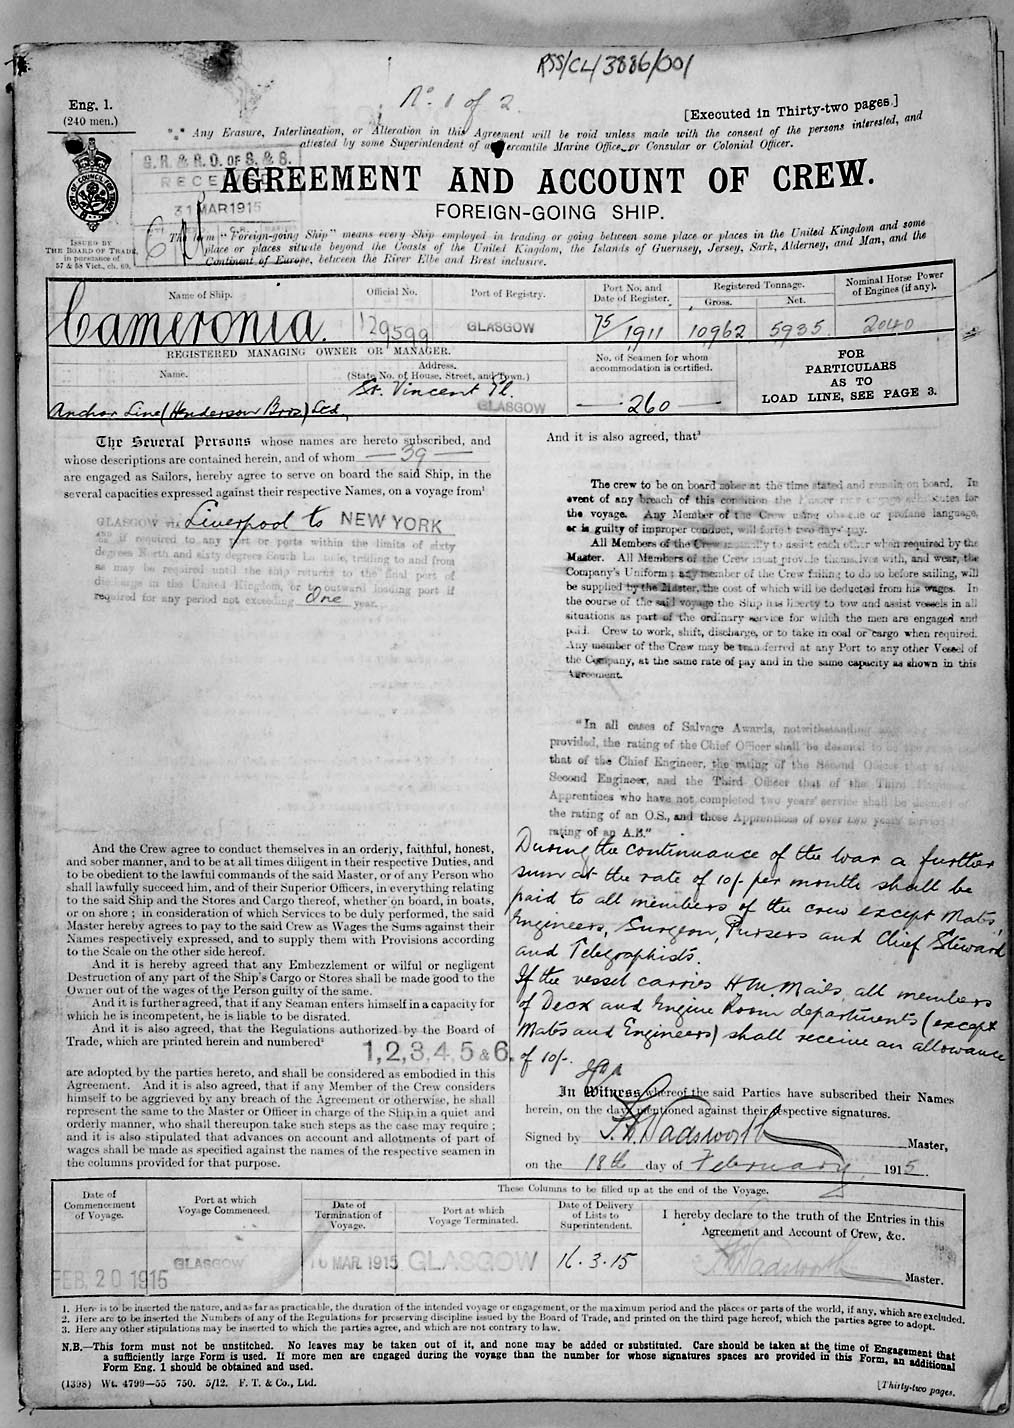 RSS/CL/3886/001
No. 1 of 2.
Eng. 1.
(240 men.)
[Executed in Thirty-two pages.]
Any Erasure, Interlineation, or Alteration in this Agreement will be void unless made with the consent of the persons interested, and
attested by some Superintendent of a Mercantile Marine Office, or Consular or Colonial Officer.
G. R. & R. O. OF S. & S.
RECE
31 MAR 1915
AGREEMENT AND ACCOUNT OF CREW.
FOREIGN-GOING SHIP.
ISSUED BY
THE BOARD OF TRADE,
in pursuance of
57 & 58 Vict., ch. 60.
The term "Foreign-going Ship" means every Ship employed in trading or going between some place or places in the United Kingdom and some
place or places situate beyond the Coasts of the United Kingdom, the Islands of Guernsey, Jersey, Sark, Alderney, and Man, and the
Continent of Europe, between the River Elbe and Brest inclusive.
Name of Ship. Official No. Port of Registry. Port No. and Date of Register. Registered Tonnage. Gross. Net. Nominal Horse Power of Engines (if any).
Cameronia. 129599 GLASGOW 75/1911 10962 5935 2040
REGISTERED MANAGING OWNER OR MANAGER.
Name. Address. (State No. of House, Street, and Town.)
No. of Seamen for whom accommodation is certified.
St. Vincent Pl.
GLASGOW
Anchor Line (Henderson Bros) Ltd,
260
FOR
PARTICULARS
AS TO
LOAD LINE, SEE PAGE 3.
The Several Persons whose names are hereto subscribed, and
whose descriptions are contained herein, and of whom 39
are engaged as Sailors, hereby agree to serve on board the said Ship, in the
several capacities expressed against their respective Names, on a voyage from¹
GLASGOW via Liverpool to NEW YORK
and if required to any port or ports within the limits of sixty
degrees North and sixty degrees South Latitude, trading to and from
as may be required until the ship returns to the final port of
discharge in the United Kingdom, or to outward loading port if
required for any period not exceeding One year.
And the Crew agree to conduct themselves in an orderly, faithful, honest,
and sober manner, and to be at all times diligent in their respective Duties, and
to be obedient to the lawful commands of the said Master, or of any Person who
shall lawfully succeed him, and of their Superior Officers, in everything relating
to the said Ship and the Stores and Cargo thereof, whether on board, in boats,
or on shore; in consideration of which Services to be duly performed, the said
Master hereby agrees to pay to the said Crew as Wages the Sums against their
Names respectively expressed, and to supply them with Provisions according
to the Scale on the other side hereof.
And it is hereby agreed that any Embezzlement or wilful or negligent
Destruction of any part of the Ship's Cargo or Stores shall be made good to the
Owner out of the wages of the Person guilty of the same.
And it is further agreed, that if any Seaman enters himself in a capacity for
which he is incompetent, he is liable to be disrated.
And it is also agreed, that the Regulations authorized by the Board of
Trade, which are printed herein and numbered²
1, 2, 3, 4, 5 & 6.
are adopted by the parties hereto, and shall be considered as embodied in this
Agreement. And it is also agreed, that if any Member of the Crew considers
himself to be aggrieved by any breach of the Agreement or otherwise, he shall
represent the same to the Master or Officer in charge of the Ship in a quiet and
orderly manner, who shall thereupon take such steps as the case may require;
and it is also stipulated that advances on account and allotments of part of
wages shall be made as specified against the names of the respective seamen in
the columns provided for that purpose.
And it is also agreed, that³
The crew to be on board sober at the time stated and remain on board. In
event of any breach of this condition the Master may engage substitutes for
the voyage. Any Member of the Crew using obscene or profane language,
or is guilty of improper conduct, will forfeit two days' pay.
All Members of the Crew to assist each other when required by the
Master. All Members of the Crew must provide themselves with, and wear, the
Company's Uniform; any member of the Crew failing to do so before sailing, will
be supplied by the Master, the cost of which will be deducted from his wages. In
the course of the said voyage the Ship has liberty to tow and assist vessels in all
situations as part of the ordinary service for which the men are engaged and
paid. Crew to work, shift, discharge, or to take in coal or cargo when required.
Any member of the Crew may be transferred at any Port to any other Vessel of
the Company, at the same rate of pay and in the same capacity as shown in this
Agreement.
"In all cases of Salvage Awards, notwithstanding
provided, the rating of the Chief Officer shall be deemed to be the
that of the Chief Engineer, the rating of the Second Officer that of
Second Engineer, and the Third Officer that of the Third
Apprentices who have not completed two years' service shall be deemed
the rating of an O.S., and those Apprentices of over two years' service
rating of an A.B."
During the continuance of the war a further
sum at the rate of 10/- per month shall be
paid to all members of the crew except Mates,
Engineers, Surgeon, Pursers and Chief Steward
and Telegraphists.
If the vessel carries H.M. Mails all members
of Deck and Engine Room departments (except
Mates and Engineers) shall receive an allowance
of 10/-.
In Witness whereof the said Parties have subscribed their Names
herein, on the day mentioned against their respective signatures.
Signed by F. Wadsworth Master,
on the 18th day of February 1915.
These Columns to be filled up at the end of the Voyage.
Date of Commencement of Voyage. Port at which Voyage Commenced. Date of Termination of Voyage. Port at which Voyage Terminated. Date of Delivery of Lists to Superintendent.
I hereby declare to the truth of the Entries in this
Agreement and Account of Crew, &c.
FEB. 20 1915 GLASGOW 16 MAR. 1915 GLASGOW 16.3.15
Wadsworth Master.
1. Here is to be inserted the nature, and as far as practicable, the duration of the intended voyage or engagement, or the maximum period and the places or parts of the world, if any, which are excluded.
2. Here are to be inserted the Numbers of any of the Regulations for preserving discipline issued by the Board of Trade, and printed on the third page hereof, which the parties agree to adopt.
3. Here any other stipulations may be inserted to which the parties agree, and which are not contrary to law.
N.B.—This form must not be unstitched. No leaves may be taken out of it, and none may be added or substituted. Care should be taken at the time of Engagement that
a sufficiently large Form is used. If more men are engaged during the voyage than the number for whose signatures spaces are provided in this Form, an additional
Form Eng. 1 should be obtained and used.
(1398) Wt. 4799—55 750. 5/12. F. T. & Co., Ltd.
[Thirty-two pages.